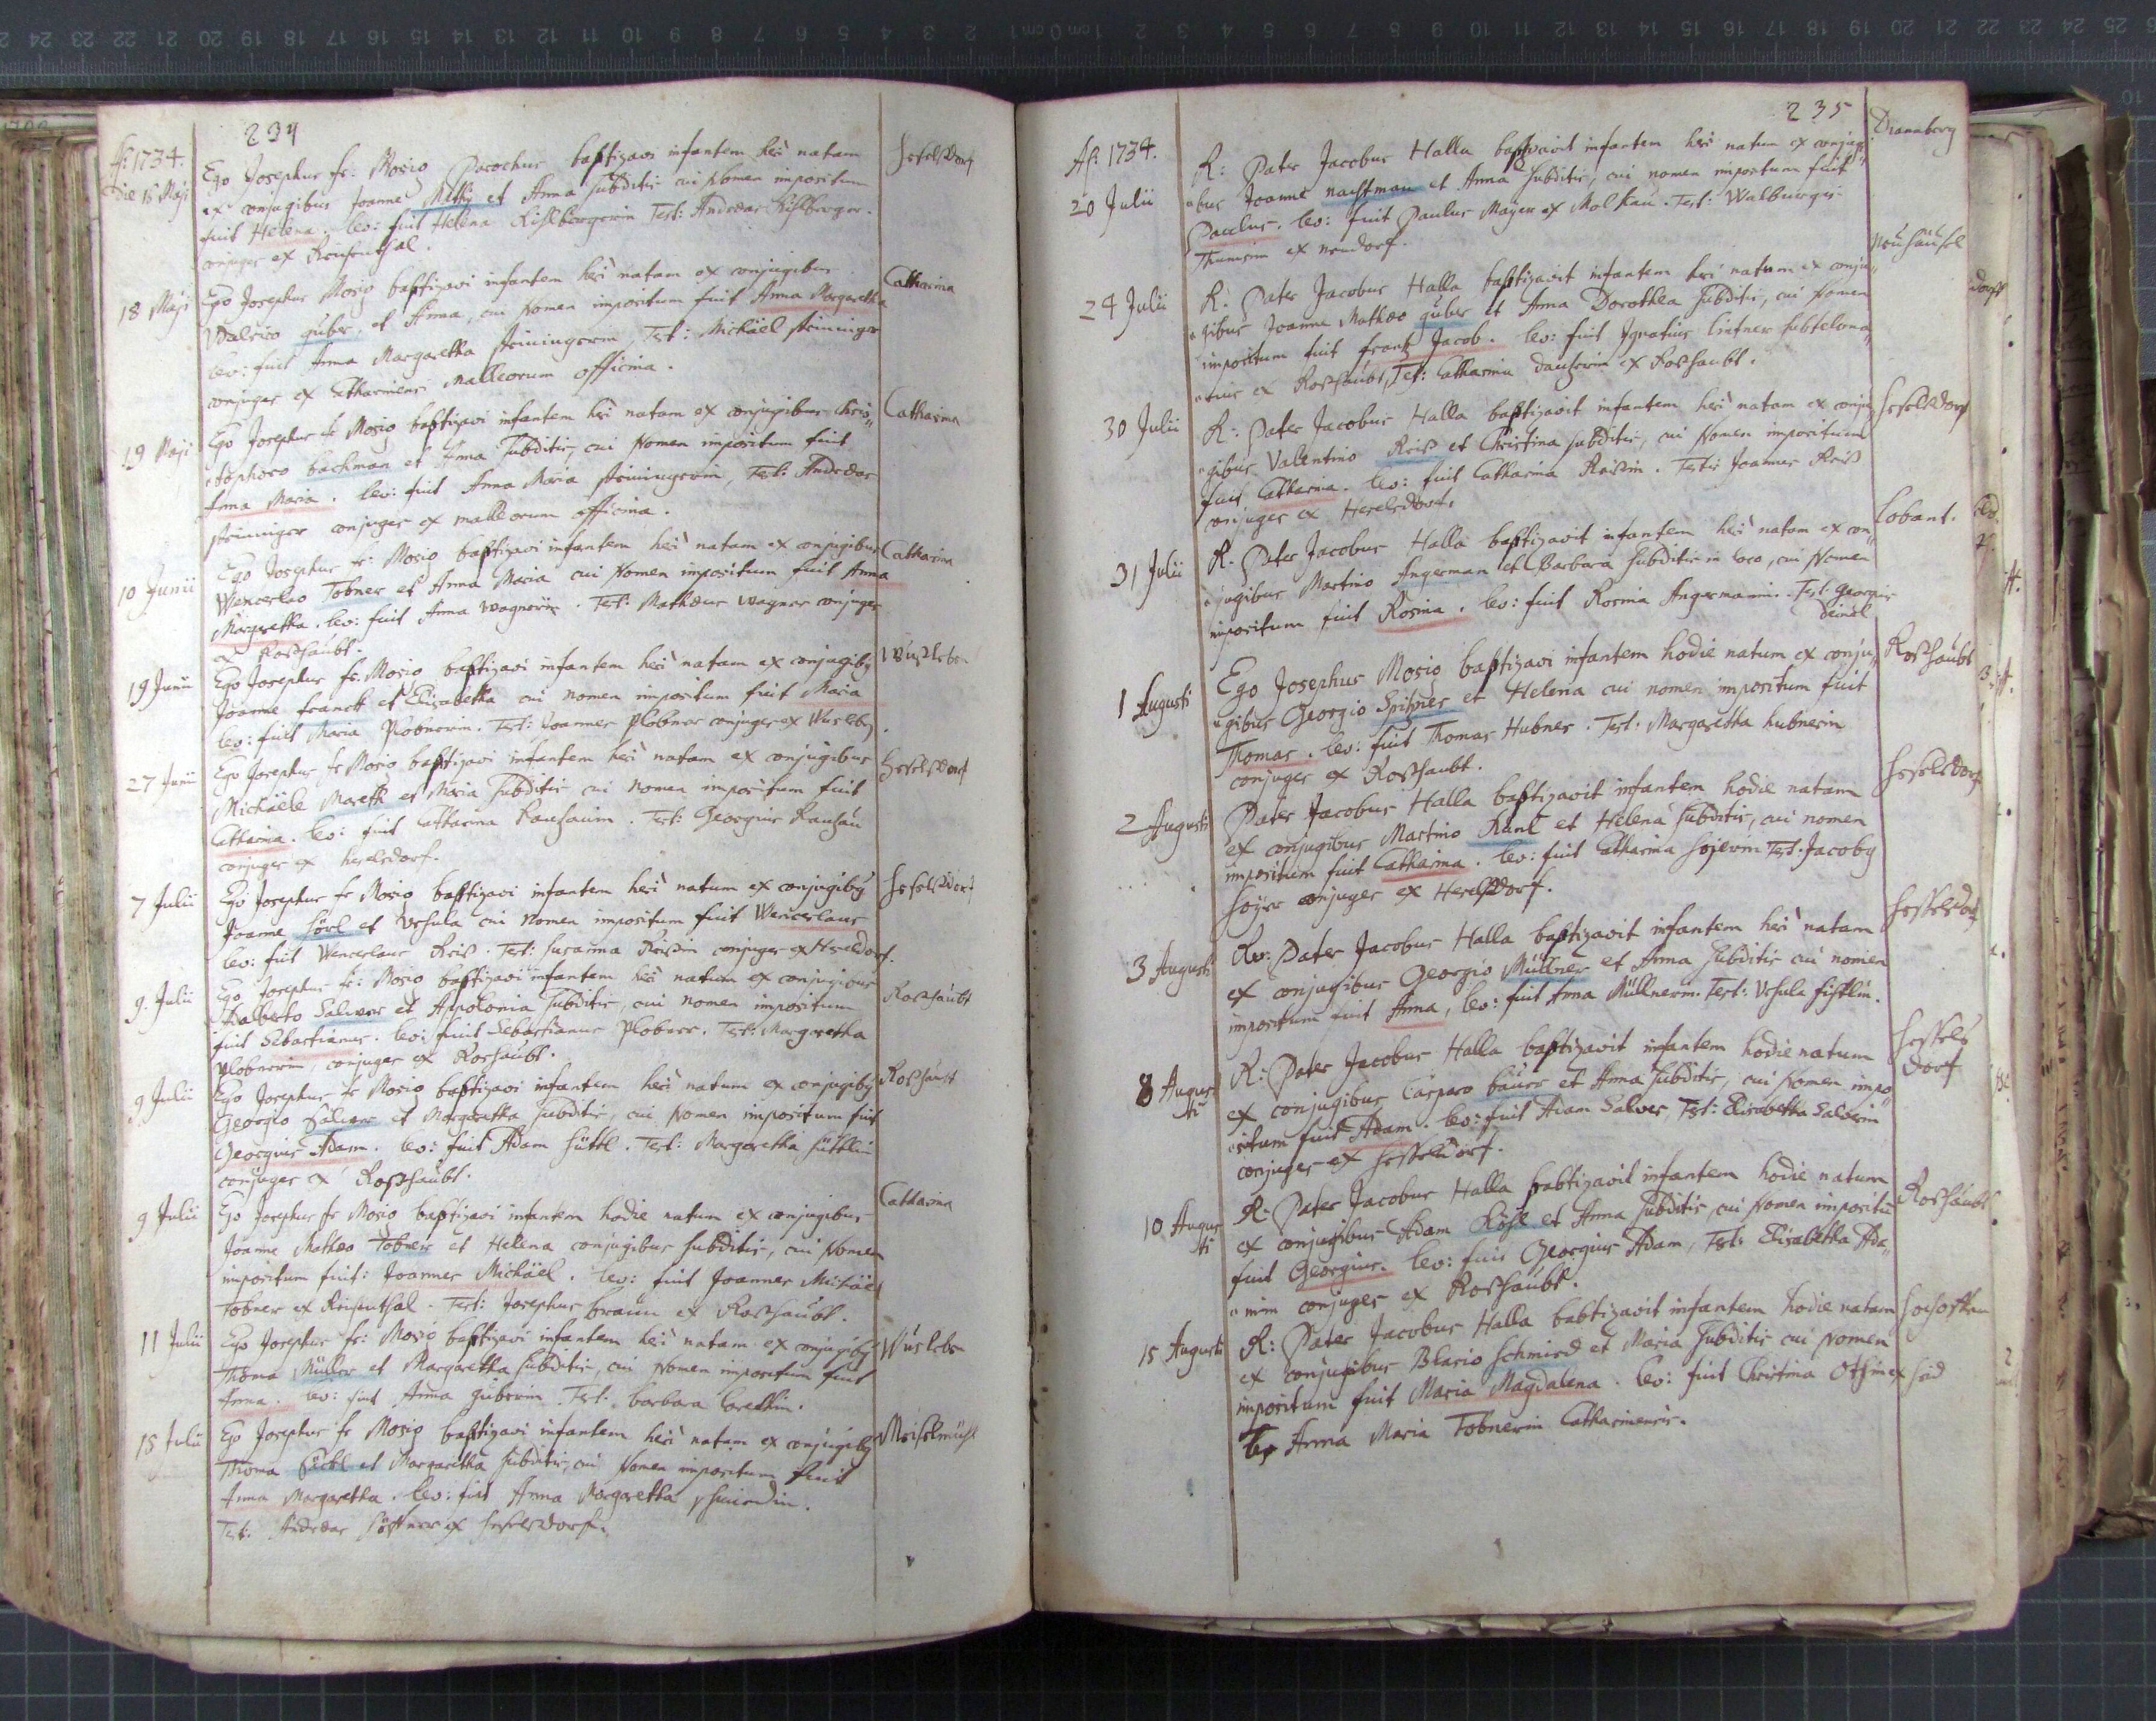 234
Aō: 1734.
die 15 Maji
Ego Josephus fr: Mosig Parochus baptizavi infantem heri natam
ex conjugibus Joanne et Anna subditis cui Nomen impositum
fuit Helena. lev: fuit Helena Test: Andreas
conjuges ex
Heselsdorf
18 Maji
Ego Josephus Mosig baptizavi infantem heri natam ex conjugibus
Udalrico guber, et Anna, cui Nomen impositum fuit Anna Margaretha
lev: fuit Anna Margaretha steiningerin, Test: Michäel steininger
conjuges ex Malleorum officina.
Catharina
19 Maji
Ego Josephus fr Mosig baptizavi infantem heri natam ex conjugibus Chris„
„tophoro bachman et Anna subditis, cui Nomen impositum fuit
Anna Maria. lev: fuit Anna Maria steiningerin, Test: Andreas
steininger conjuges ex malleorum officina.
Catharina
10 Junii
Ego Josephus fr: Mosig baptizavi infantem heri natam ex conjugibus
Wenceslao Tobner et Anna Maria cui Nomen impositum fuit Anna
Margaretha. lev: fuit Anna wagnerin. Test: Mathæus wagner conjuges
ex Roshaubt.
Catharina
19 Junii
Ego Josephus fr. Mosig baptizavi infantem heri natam ex conjugiby
Joanne franck et Elisabetha cui nomen impositum fuit Maria
lev: fuit Maria Plobnerin. Test: Joannes Plobner conjuges ex
27 Junii
Ego Josephus fr Mosig baptizavi infantem heri natam ex conjugibus
Michäele Mareth et Maria subditis cui nomen impositum fuit
Catharina. lev: fuit Catharina Test: Georgius
conjuges ex heselsdorf.
Heselsdorf
7 Julii
Ego Josephus fr Mosig baptizavi infantem heri natum ex conjugiby
Joanne et Ursula cui nomen impositum fuit Wenceslaus
lev: fuit Wenceslaus Reiß. Test: Susanna Reißin conjuges ex Heselsdorf.
Heselsdorf
9. Julii
Ego Josephus fr: Mosig baptizavi infantem heri natum ex conjugibus
Adalberto Salwer et Appolonia subditis, cui nomen impositum
fuit Sebastianus. lev: fuit Sebastianus Plobner. Test: Margaretha
Plobnerin, conjuges ex Roshaubt.
Roshaubt
9 Julii
Ego Josephus fr Mosig baptizavi infantem heri natum ex conjugiby
Georgio Salwer et Margaretha subditis, cui Nomen impositum fuit
Georgius Adam. lev: fuit Adam hüttl. Test: Margaretha hüttlin
conjuges ex Roshaubt.
Roshaubt
9 Julii
Ego Josephus fr Mosig baptizavi infantem hodie natum ex conjugibus
Joanne Mathæo Tobner et Helena conjugibus subditis, cui Nomen
impositum fuit: Joannes Michäel. lev: fuit Joannes Michäel
Tobner ex Test: Josephus braun ex Roshaubt.
Catharina
11 Julii
Ego Josephus fr: Mosig baptizavi infantem heri natam ex conjugiby
Thoma Müller et Margaretha subditis, cui Nomen impositum fuit
Anna. lev: fuit Anna guberin. Test: barbara
15 Julii
Ego Josephus fr Mosig baptizavi infantem heri natam ex conjugiby
Thoma et Margaretha subditis, cui Nomen impositum fuit
Anna Margaretha. lev: fuit Anna Margaretha
Test: Andreas ex heselsdorf.
235
Aō: 1734.
20 Julii
R: Pater Jacobus Halla baptizavit infantem heri natum ex conjugi„
„bus Joanne nachtman et Anna subditis, cui nomen impositum fuit
Paulus. lev: fuit Paulus Mayer ex Test: Walburgis
ex neudorf.
24 Julii
R. Pater Jacobus Halla baptizavit infantem heri natum ex conju„
„gibus Joanne Mathæo guber et Anna Dorothea subditis, cui Nomen
impositum fuit frantz Jacob. lev: fuit Ignatius lintner
ex Roshaubt, Test: Catharina ex Roshaubt.
Neuhäusel
30 Julii
R: Pater Jacobus Halla baptizavit infantem heri natam ex conju
„gibus Valentino Reiß et Christina subditis, cui Nomen impositum
fuit Catharina. lev: fuit Catharina Reißin. Testis Joannes Reiß
conjuges ex Heselsdorf.
Heselsdorf
31 Julii
R. Pater Jacobus Halla baptizavit infantem heri natam ex con„
„jugibus Martino Angerman et Barbara subditis in loco, cui Nomen
impositum fuit Rosina. lev: fuit Rosina Angermanin. Test: Georgius
deindl
Gobant.
1 Augusti
Ego Josephus Mosig baptizavi infantem hodie natum ex conju„
„gibus Georgio Spitzner et Helena cui nomen impositum fuit
Thomas. lev: fuit Thomas Hubner. Test: Margaretha hubnerin
conjuges ex Roshaubt.
Roshaubt
2 Augusti
Pater Jacobus Halla baptizavit infantem hodie natam
ex conjugibus Martino et Helena subditis, cui nomen
impositum fuit Catharina. lev: fuit Catharina hoyerin Test. Jacoby
hoyer conjuges ex Heselsdorf.
Heselsdorf
3 Augusti
Rev: Pater Jacobus Halla baptizavit infantem heri natam
ex conjugibus Georgio Müllner et Anna subditis cui nomen
impositum fuit Anna, lev: fuit Anna Müllnerin. Test: Ursula
Hesselsdorf
8 Augus
ti
R: Pater Jacobus Halla baptizavit infantem hodie natum
ex conjugibus Casparo bäuer et Anna subditis, cui Nomen impo„
„situm fuit Adam. lev: fuit Adam Salwer Test: Elisabetha Salwerin
conjuges ex Hesselsdorf.
Hessels
dorf
10 Augus
ti
R: Pater Jacobus Halla babtizavit infantem hodie natum
ex conjugibus Adam et Anna subditis, cui Nomen impositū
fuit Georgius. lev: fuit Georgius Adam, Test: Elisabetha Ada„
„min conjuges ex Roshaubt.
Roshaubt
15 Augusti
R: Pater Jacobus Halla babtizavit infantem hodie natam
ex conjugibus Blasio schmied et Maria subditis cui Nomen
impositum fuit Maria Magdalena. lev: fuit Christina
Anna Maria Tobnerin Catharinensis.